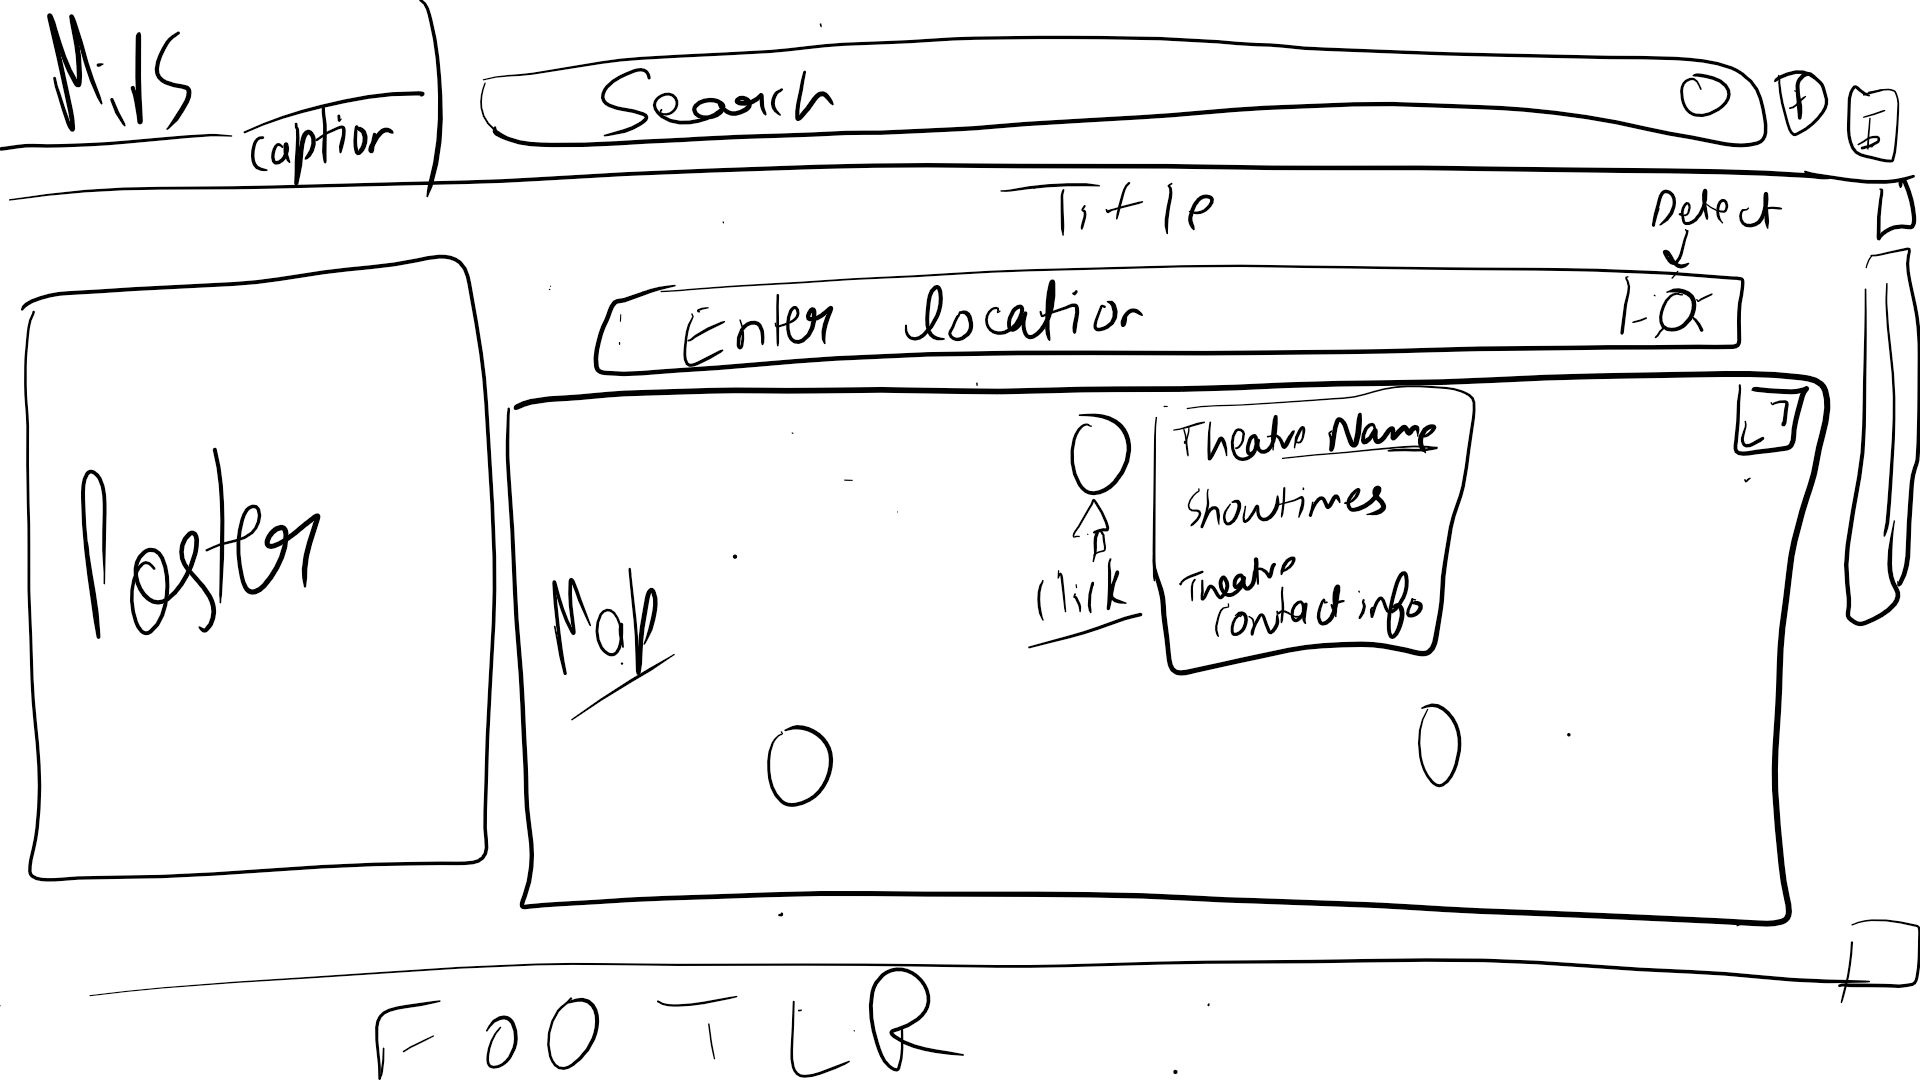 caption
Search
Title
Detect
Enter location
Poster
Map
click
Theatre Name
Showtimes
Theatre
contact info
FOOTER